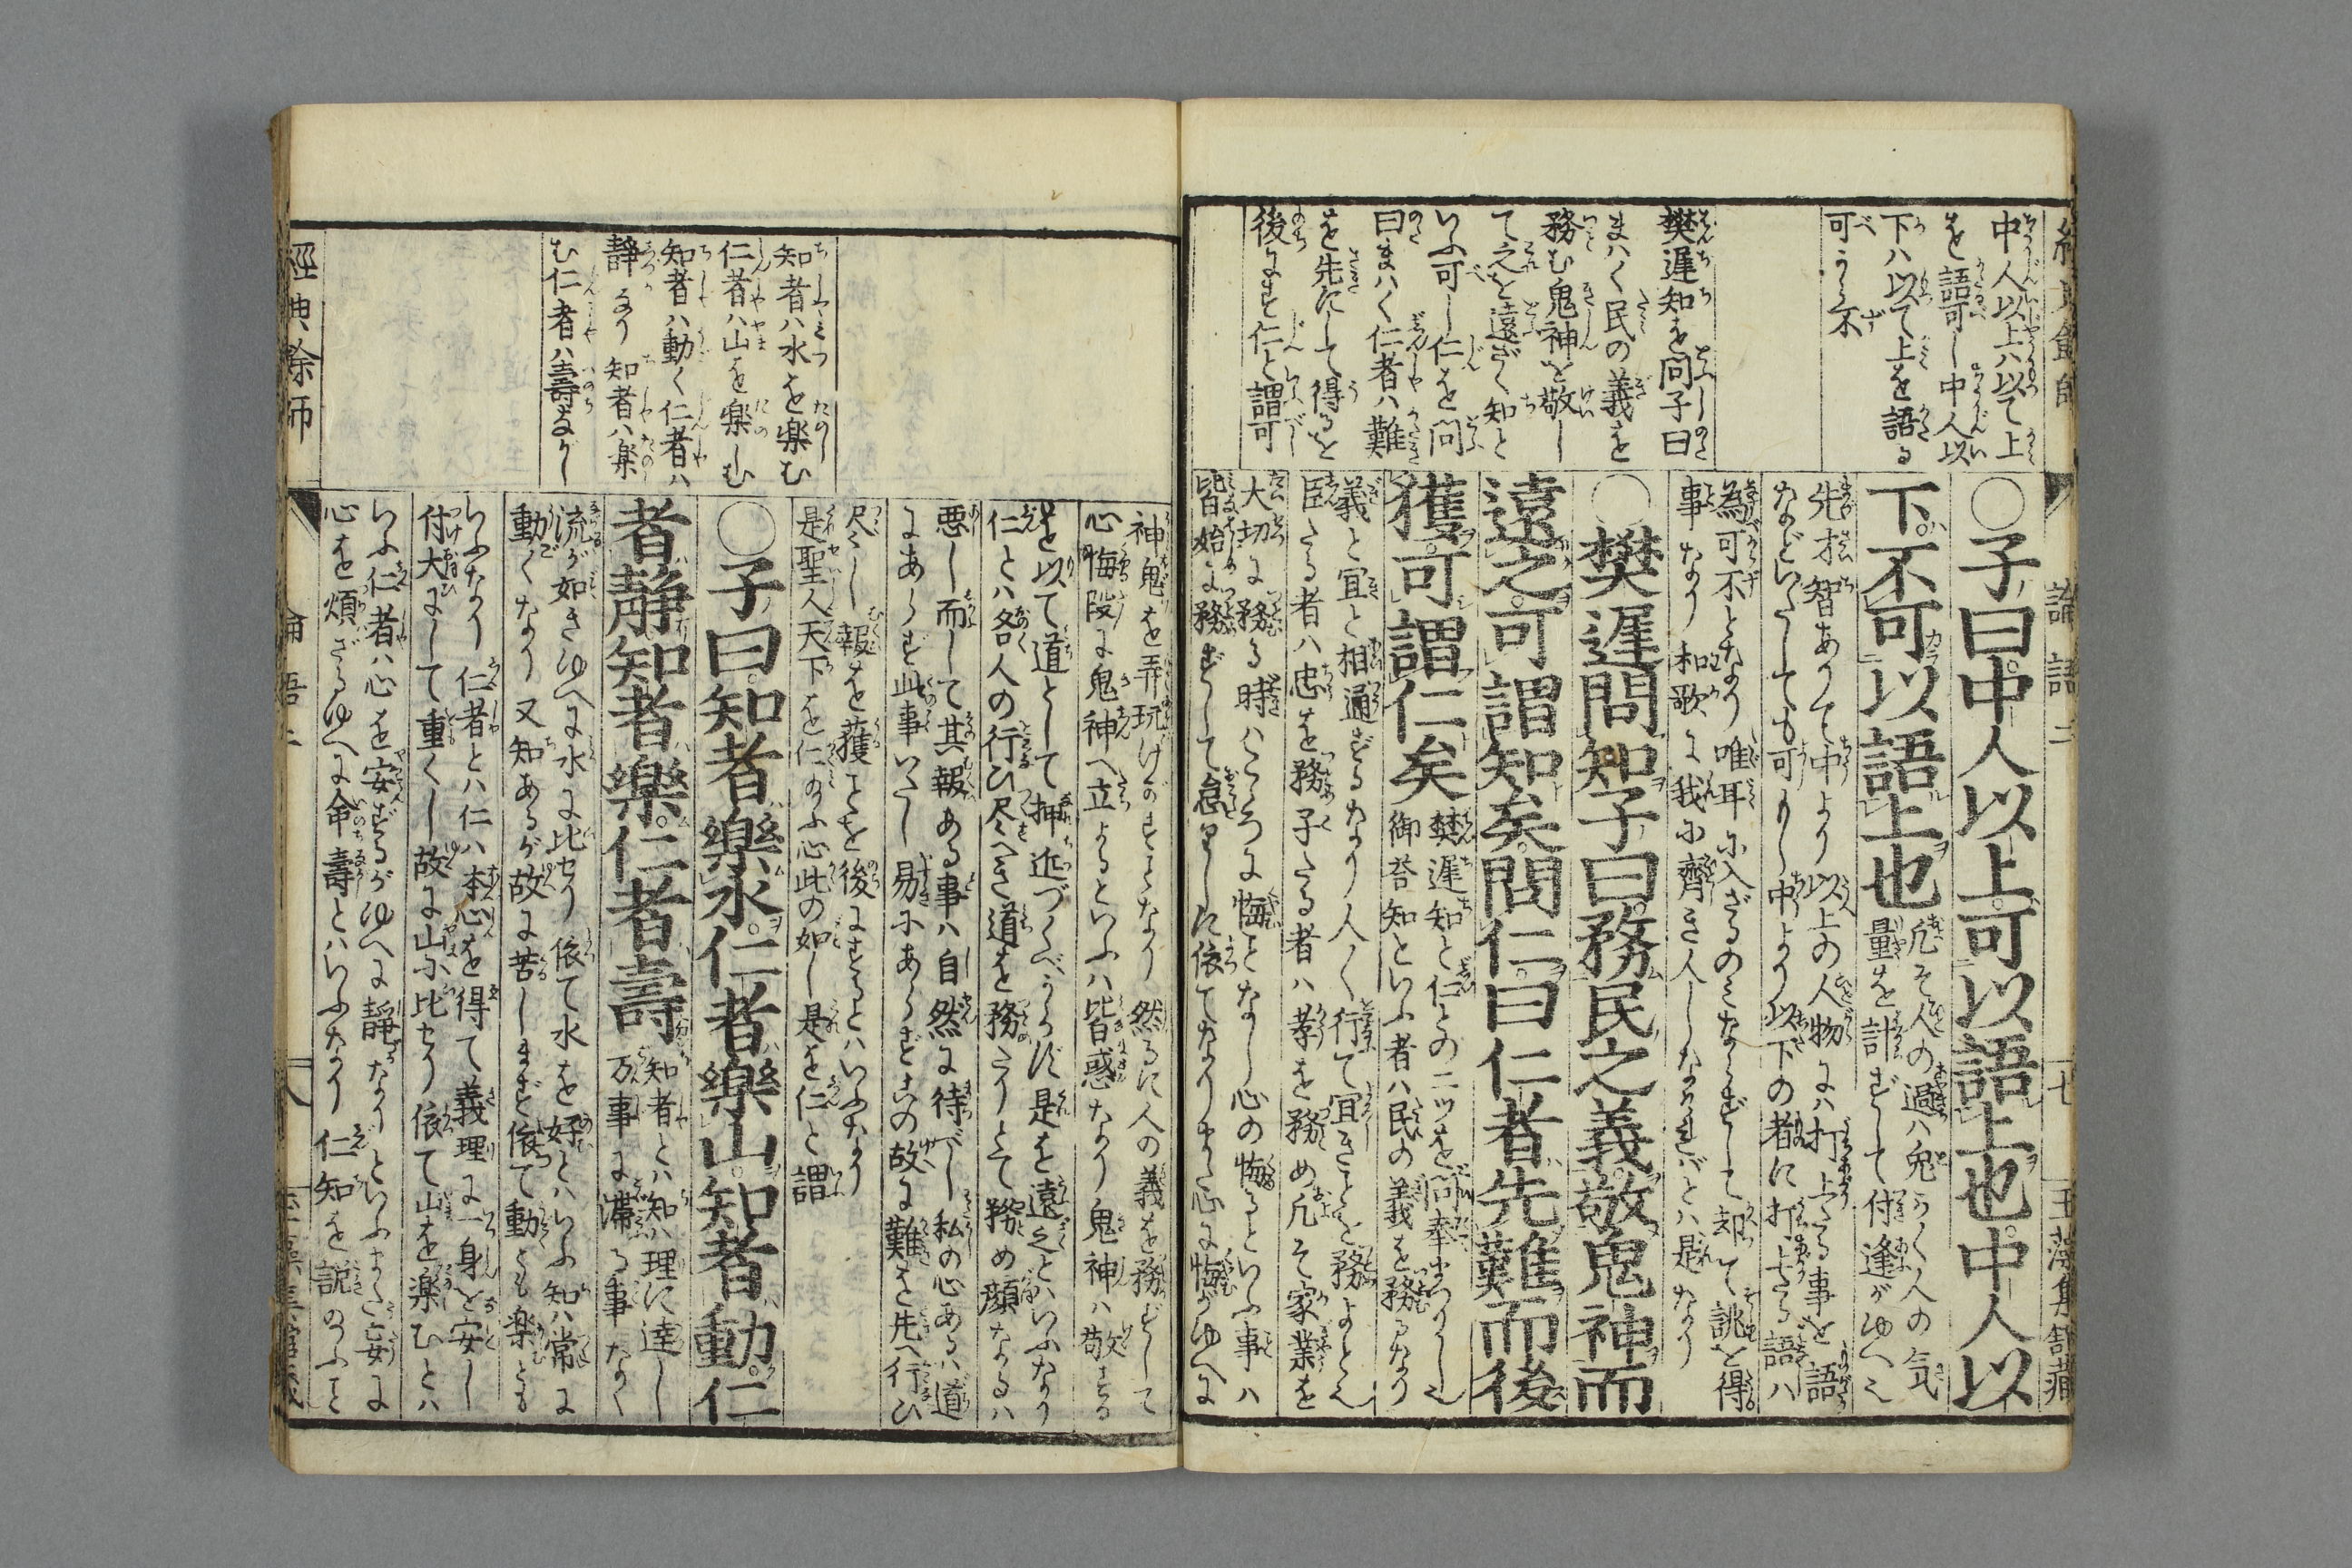 論語二
十七
玉藻集舘藏
中人以上ハ以て上
を語可し中人以
下ハ以て上を語る
可うら不
樊遲知を問子曰
まハく民の義を
務む鬼神を敬し
て之を遠ざく知と
いふ可し仁を問
曰まハく仁者ハ難
を先にして得るを
後にす仁と謂可
○子曰中人以上可以語上也中人以
下不可以語上也
凡そ人の過ハ鬼うく人の気
量を計ずして付逢がゆへ也
先才智ありて中より以上の人物にハ打上たる事を語
などいたしても可りし中より以下の者に打上たる語ハ
為可不となり唯耳に入ざるのミならずして却て誹を得
事なり和歌に我に齊き人しなけれバとハ是なり
○樊遲問知子曰務民之義敬鬼神而
遠之可謂知矣問仁曰仁者先難而後
獲可謂仁矣
樊遲知と仁との二ツを問奉まつりし也
御荅知といふ者ハ民の義を務るなり
義と宜と相通ずるなり人〻行て宜きことを務よとん
臣たる者ハ忠を務子たる者ハ孝を務め凡そ家業を
大切に務る時ハこころに悔となし心の悔るといふ事ハ
皆始に務ずして怠りしに依てなりまた心に悔がゆへに
神鬼を弄玩けがすことなり然るに人の義を務ずして
心悔段に鬼神へ立よるといふハ皆惑なり鬼神ハ敬する
を以て道として押近づくべからず是を遠之とハいふなり
仁とハ各人の行ひ尽へき道を務たりとて務め顔なるハ
悪し而して其報ある事ハ自然に待べし私の心あるハ道
にあらず此事いたし易にあらずその故に難を先へ行ひ
尽くし報を獲ことを後にするとハいふなり
是聖人天下を仁のふ心此の如し是を仁と謂
知者ハ水を楽む
仁者ハ山を楽しむ
知者ハ動く仁者ハ
静なり知者ハ楽
む仁者ハ壽ながし
○子曰知者樂水仁者樂山知者動仁
者靜知者樂仁者壽
知者とハ知ハ理に達し
万事に滯る事なく
流が如きゆへに水に比せり依て水を好とハいふ知ハ常に
動くなり又知あるが故に苦しまず依て動くも楽とも
いふなり仁者とハ仁ハ本心を得て義理に一身を安し
付大にして重くし故に山に比せり依て山を楽むとハ
いふ仁者ハ心を安ずるがゆへに靜なりといふまた妄に
心を煩ざるゆへに命壽とハいふなり仁知を説のふと
經典餘師
論語二